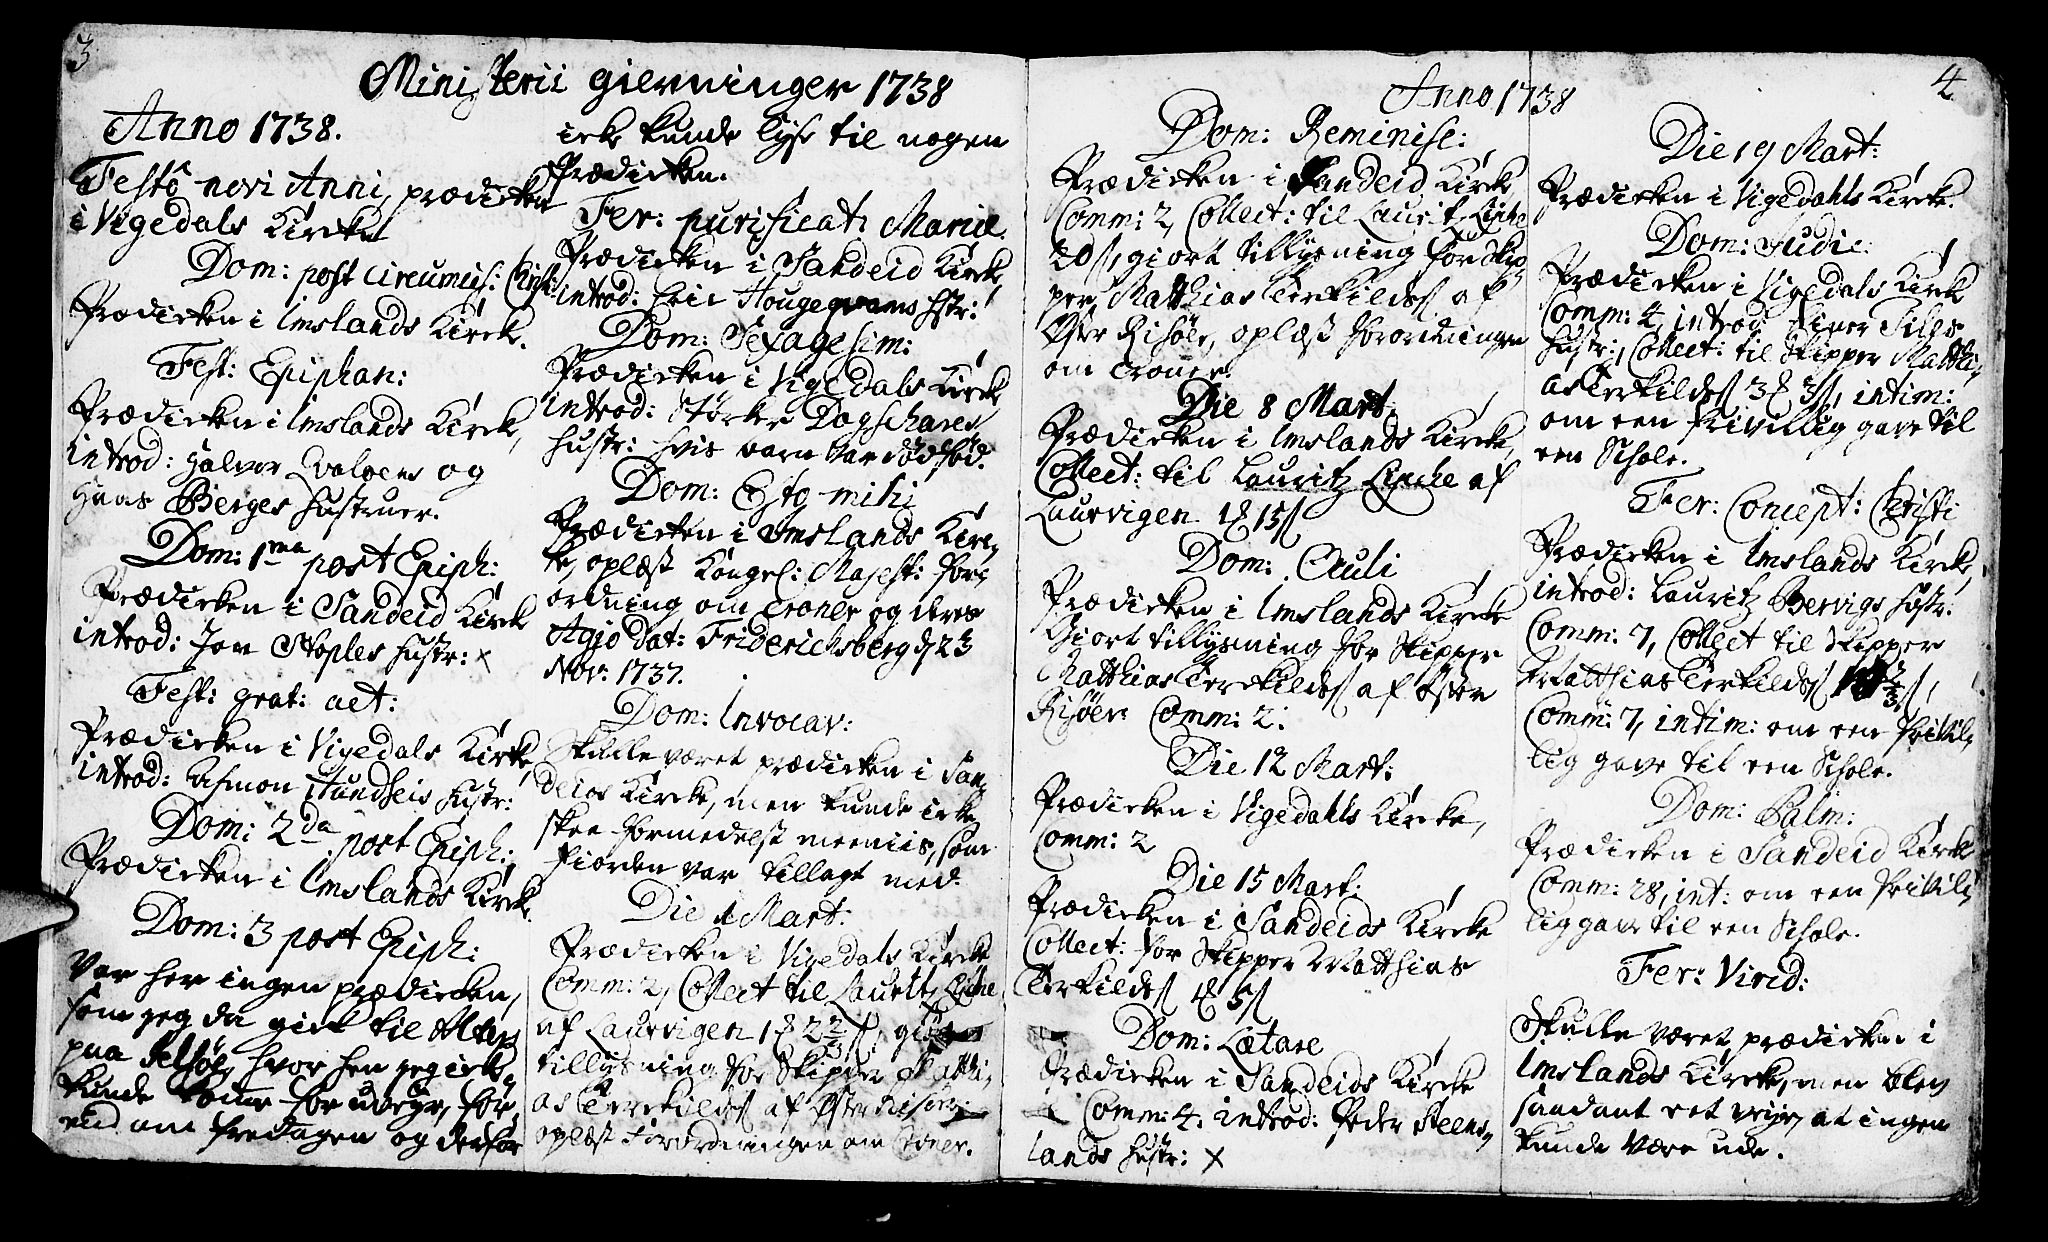 3
Ministerii gierninger 1738
Anno 1738.
Festô novi Anni, prædicken
i Vigedals Kircke
Dom: post circumcis: Christi
Prædicken i Imslands Kirck.
Fest: Epiphan:
Prædicken i Imslands Kirck,
introd: Halvor og
Hans Berges Hustruer.
Dom: 1ma post Epiph:
Prædicken i Sandeid Kirck
introd: Jon Stoples Hustr: x
Fest: grat: act:
Prædicken i Vigedals Kirke,
introd: Asmon Hundseis Hustr:
Dom: 2da post Epiph:
Prædicken i Imslands Kirck.
Dom: 3 post Epiph:
Var her ingen prædicken,
som jeg da gick til Alters
paa hvor hen jeg icke
kunde komme for uveyr, før,
end om fredagen og derfor
icke kunde lyse til nogen
Prædicken.
Fer: purificat: Mariæ
Prædicken i Sandeid Kirck,
introd: Eric Hougegvams Hstr:
Dom: Sexagesim:
Prædicken i Vigedals Kirck,
introd: Størker Dagshares
Hustr: hvis barn var dødfød.
Dom: Esto mihi
Prædicken i Imslands Kirc,
ke, oplæst Kongel: Majest: for,
ordning om Croner og deres
Agio Dat: Friderichsberg d. 23
Nov: 1737.
Dom: Invocav:
Skulle været prædicken i San,
deids Kircke, men kunde icke
skee formedelst meeniis, som
fiorden var tillagt med.
Die 1 Mart:
Prædicken i Vigedals Kircke
Comm: 2, Collect til Lauritz Lyche
af Laurvigen 1 22
tillysning for Skipper Matthi,
as Terkilds af Øster Risøer,
oplæst Forordningen om Croner.
Anno 1738
4
Dom: Reminisc:
Prædicken i Sandeid Kirck,
Comm: 2, Collect: til Lauritz Lyche
20 s, giort tillysning for Skip,
per Matthias Terkilds af
Øster Risøer, oplæst forordningen
om Croner.
Die 8 Mart.
Prædicken i Imslands Kircke,
Collect: til Lauritz Lyche af
Laurvigen 15 s
Dom: Oculi
Prædicken i Imslands Kircke
Giort tillysning for Skipper
Matthias Terckilds af Øster
Risöer. Comm: 2.
Die 12 Mart:
Prædicken i Vigedahls Kircke,
Comm: 2
Die 15 Mart:
Prædicken i Sandeids Kircke
Collect: for Skipper Matthias
Terkilds 5 s
Dom: Lætare
Prædicken i Sandeids Kircke
Comm: 4. introd: Peder Steens,
lands Hustr: x
Die 19 Mart:
Prædicken i Vigedahls Kirck.
Dom: Judic:
Prædicken i Vigedals Kirck
Comm: 4, introd: Hustr:, Collect: til Skipper Matthi,
as Terkilds 3 3 s, intim:
om een frivillig gave til
een Schole.
Fer: Concept: Christi
Prædicken i Imslands Kirck,
introd: Lauritz Bervigs Hustr:
Comm: 7, Collect til Skipper
Matthias Terkilds
Comm: 7, intim: om een frivil,
lig gave til een Schole.
Dom: Palm:
Prædicken i Sandeid Kirck
Comm: 28, int: om een frivil,
lig gave til een Schole.
Fer: Virid:
Skulle været prædicken i
Imslands Kircke, men blev
saadant et veyr, at ingen
kunde være ude.